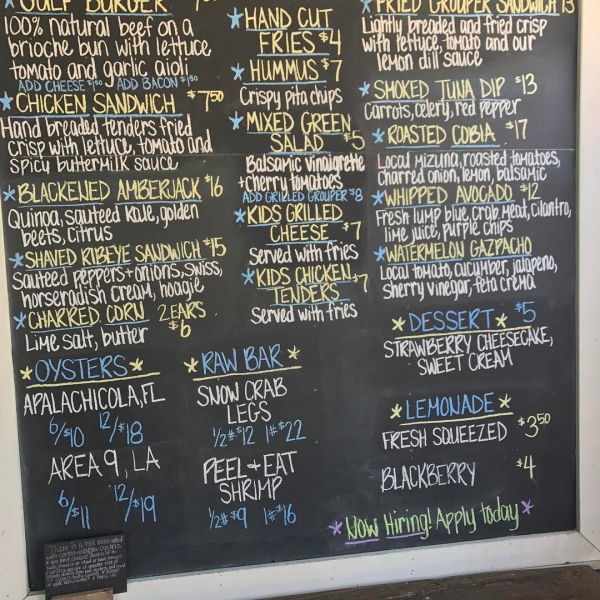 GULF BURGER
100% natural beef on a
brioche bun with lettuce,
tomato and garlic aioli
ADD CHEESE $1.50 ADD BACON $1.50
CHICKEN SANDWICH $7.50
Hand breaded tenders fried
crisp with lettuce, tomato and
spicy buttermilk sauce
BLACKENED AMBERJACK $16
Quinoa, sauteed kale, golden
beets, citrus
SHAVED RIBEYE SANDWICH $15
Sauteed peppers + onions, swiss,
horseradish cream, hoagie
CHARRED CORN 2 EARS
$6
Lime salt, butter
OYSTERS
APALACHICOLA, FL
6/$10 12/$18
AREA 9, LA
6/$11 12/$19
HAND CUT
FRIES $4
HUMMUS $7
Crispy pita chips
MIXED GREEN
SALAD $5
Balsamic vinaigrette
+ cherry tomatoes
ADD GRILLED GROUPER $8
KIDS GRILLED
CHEESE $7
Served with fries
KIDS CHICKEN
TENDERS $7
Served with fries
RAW BAR
SNOW CRAB
LEGS
1/2# $12 1# $22
PEEL + EAT
SHRIMP
1/2# $9 1# $16
FRIED GROUPER SANDWICH 13
Lightly breaded and fried crisp
with lettuce, tomato and our
lemon dill sauce
SMOKED TUNA DIP $13
Carrots, celery, red pepper
ROASTED COBIA $17
Local mizuna, roasted tomatoes,
charred onion, lemon, balsamic
WHIPPED AVOCADO $12
Fresh lump blue crab meat, cilantro,
lime juice, purple chips
WATERMELON GAZPACHO
Local tomato, cucumber, jalapeno,
sherry vinegar, feta crema
DESSERT $5
STRAWBERRY CHEESECAKE,
SWEET CREAM
LEMONADE
FRESH SQUEEZED $3.50
BLACKBERRY $4
Now Hiring! Apply today